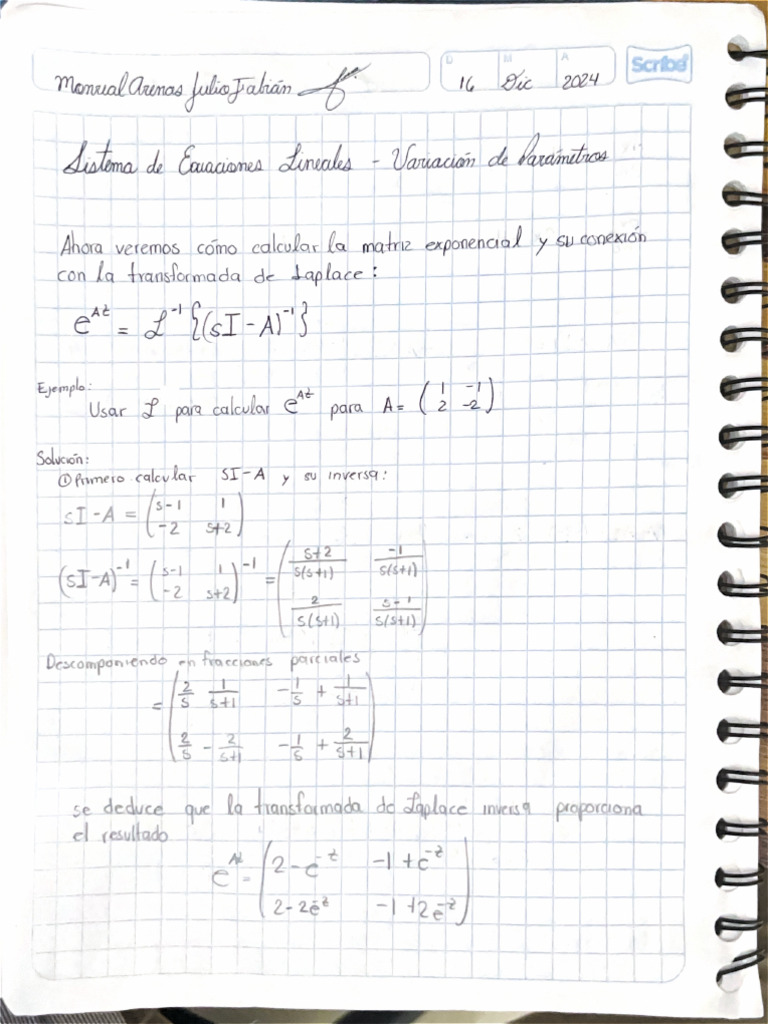 Monrual Arenas Julio Fabián
D M A
16 Dic 2024
Scribe
Sistema de Ecuaciones Lineales - Variación de Parámetros
Ahora veremos cómo calcular la matriz exponencial y su conexión
con la transformada de Laplace:
e^{At} = ℒ^{-1} {(sI - A)^{-1}}
Ejemplo:
Usar ℒ para calcular e^{At} para A = (1 -1; 2 -2)
Solución:
① Primero calcular SI-A y su inversa:
sI - A = (s-1 1; -2 s+2)
(sI-A)^{-1} = (s-1 1; -2 s+2)^{-1} = (s+2/s(s+1) -1/s(s+1); 2/s(s+1) s-1/s(s+1))
Descomponiendo en fracciones parciales
= (2/s 1/s+1 -1/s + 1/s+1; 2/s - 2/s+1 -1/s + 2/s+1)
se deduce que la transformada de Laplace inversa proporciona
el resultado
e^{At} = (2 - e^{-t} -1 + e^{-t}; 2 - 2e^{-t} -1 + 2e^{-t})